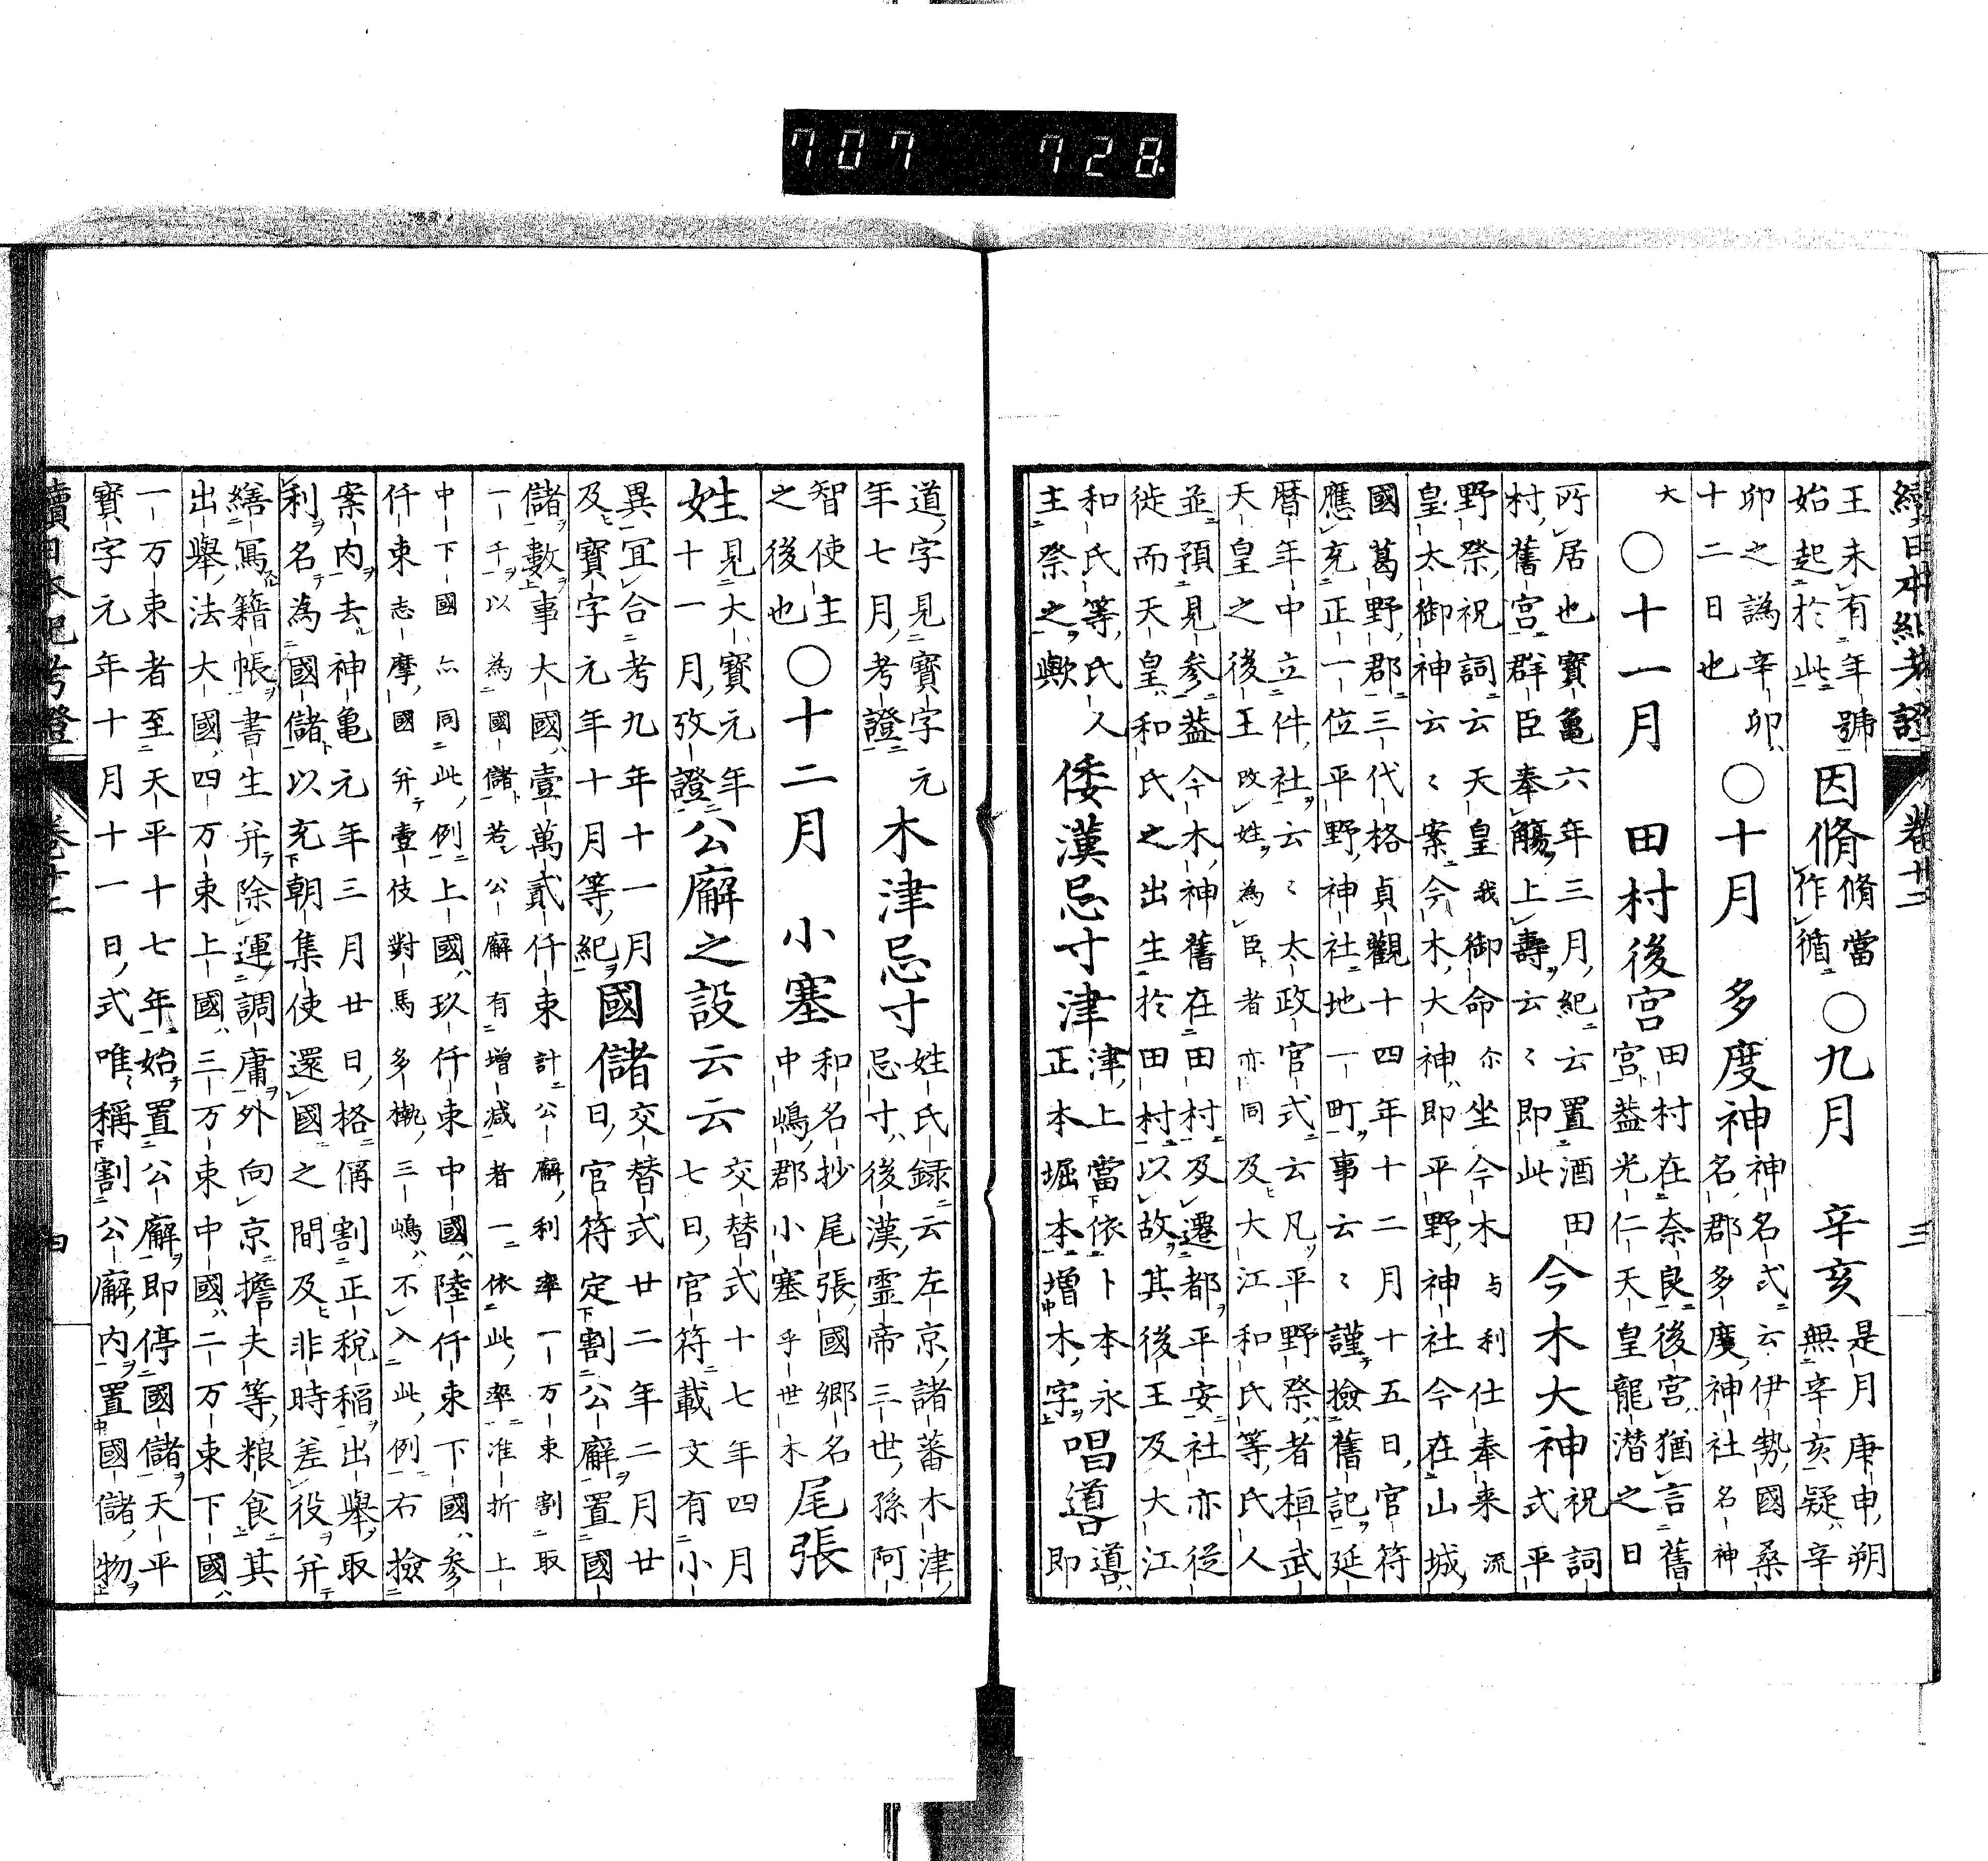 707 728
續日本紀考證 卷十二 三
王未有年號
始起於此 因脩 脩當
作循 ○九月 辛亥 是月庚申朔
無辛亥疑辛
卯之譌辛卯
十二日也 ○十月 多度神 神名式云伊勢國桑
名郡多度神社名神
大 ○十一月 田村後宮 田村在奈良後宮猶言舊
宮蓋光仁天皇龍潜之日
所居也寶龜六年三月紀云置酒田
村舊宮群臣奉觴上壽云々即此 今木大神 祝詞
式平
野祭祝詞云天皇我御命尓坐今木与利仕奉来流
皇太御神云々案今木大神即平野神社今在山城
國葛野郡三代格貞觀十四年十二月十五日官符
應充正一位平野神社地一町事云々謹撿舊記延
曆年中立件社云々太政官式云凡平野祭者桓武
天皇之後王改姓為臣者亦同及大江和氏等氏人
並預見参蓋今木神舊在田村及遷都平安社亦従
徙而天皇和氏之出生於田村以故其後王及大江
和氏等氏人
主祭之歟 倭漢忌寸津 津上當依卜本永
正本堀本增木字 唱導 導
即
道字見寶字元
年七月考證 木津忌寸 姓氏録云左京諸蕃木津
忌寸後漢霊帝三世孫阿
智使主
之後也 ○十二月 小塞 和名抄尾張國郷名
中嶋郡小塞乎世木 尾張
姓 見大寶元年
十一月攷證 公廨之設云云 交替式十七年四月
七日官符載文有小
異冝合考九年十一月
及寶字元年十月等紀 國儲 交替式廿二年二月廿
日官符定割公廨置國
儲數事大國壹萬貳仟束計公廨利率一万束割取
一千以為國儲若公廨有增減者一依此率准折上
中下國亦同此例上國玖仟束中國陸仟束下國参
仟束志摩國并壹伎對馬多褹三嶋不入此例右撿
案内去神亀元年三月廿日格偁割正税稲出舉取
利名為國儲以充朝集使還國之間及非時差役并
繕寫籍帳書生并除運調庸外向京擔夫等粮食其
出舉法大國四万束上國三万束中國二万束下國
一万束者至天平十七年始置公廨即停國儲天平
寶字元年十月十一日式唯稱割公廨内置國儲物
續日本紀考證 卷十二 四